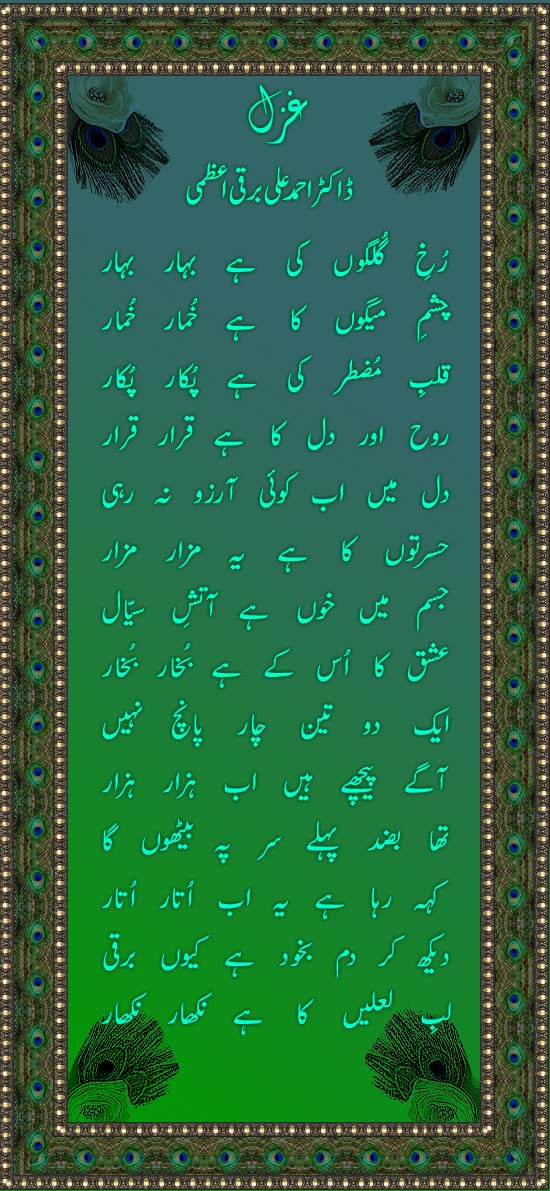 غزل
ڈاکٹر احمد علی برقی اعظمی
رُخِ گُلگوں کی ہے بہار بہار
چشمِ میگوں کا ہے خُمار خُمار
قلبِ مُضطر کی ہے پُکار پُکار
روح اور دل کا ہے قرار قرار
دل میں اب کوئی آرزو نہ رہی
حسرتوں کا ہے یہ مزار مزار
جسم میں خوں ہے آتشِ سیّال
عشق کا اُس کے ہے بُخار بُخار
ایک دو تین چار پانچ نہیں
آگے پیچھے ہیں اب ہزار ہزار
تھا بضد پہلے سر پہ بیٹھوں گا
کہہ رہا ہے یہ اب اُتار اُتار
دیکھ کر دم بخود ہے کیوں برقی
لبِ لعلیں کا ہے نکھار نکھار